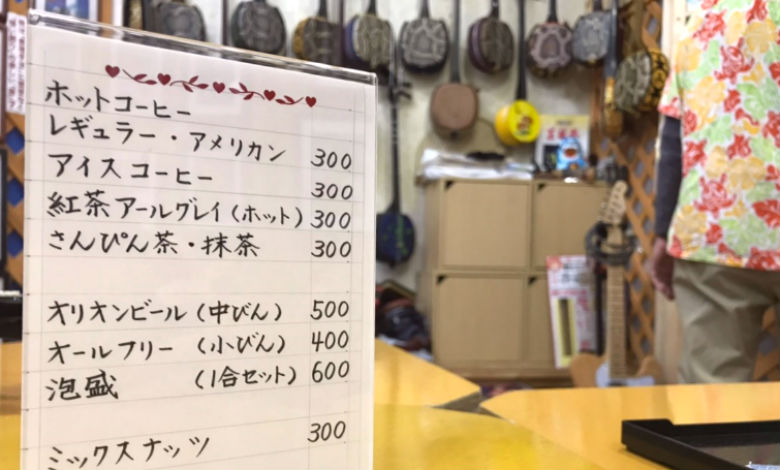 ホットコーヒー
レギュラー・アメリカン 300
アイスコーヒー 300
紅茶アールグレイ(ホット) 300
さんぴん茶・抹茶 300
オリオンビール(中びん) 500
オールフリー(小びん) 400
泡盛 (1合セット) 600
ミックスナッツ 300